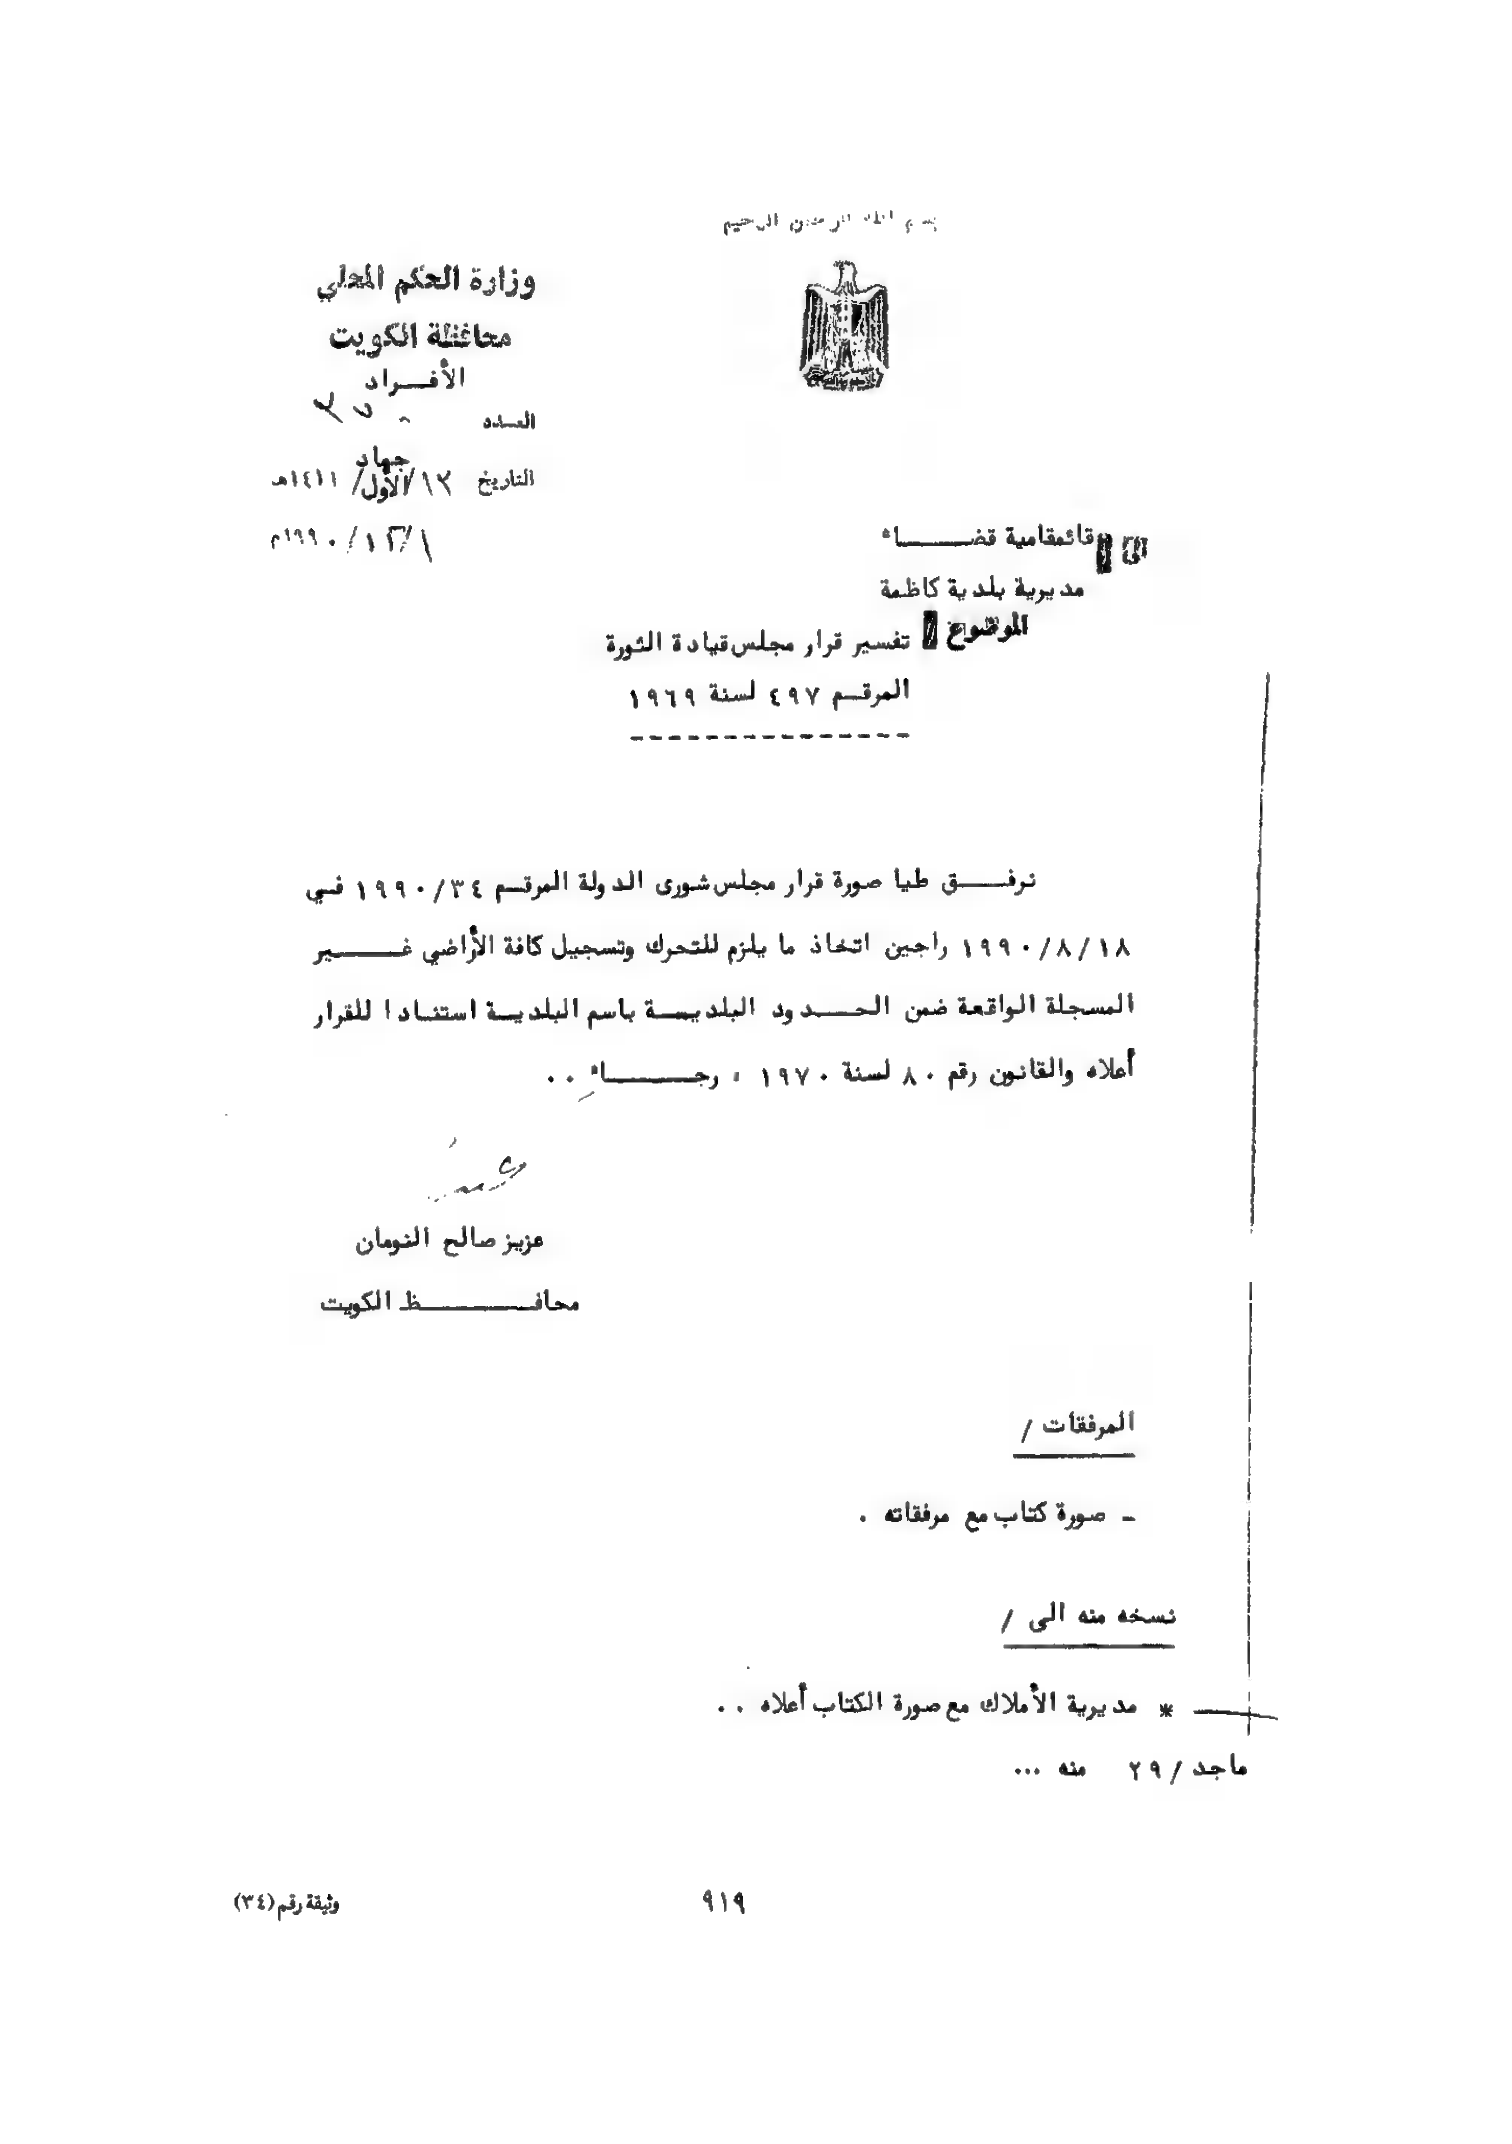 بسم الله الرحمن الرحيم
وزارة الحكم المحلي
محافظة الكويت
الأفـــراد
العـدد
التاريخ ١٣/جهاد الأول/ ١٤١١هـ
١/١٢/ ١٩٩٠م
الى / قائمقامية قضــــاء
مديرية بلدية كاظمة
الموضوع / تفسير قرار مجلس قيادة الثورة
المرقـم ٤٩٧ لسنة ١٩٦٩
نرفــــق طيا صورة قرار مجلس شورى الدولة المرقـم ٣٤/١٩٩٠ فـي
١٨/٨/١٩٩٠ راجين اتخاذ ما يلزم للتحرك وتسجيل كافة الأراضي غــــير
المسجلة الواقعة ضمن الحـــدود البلديـــة باسم البلديـة استنـادا للقرار
أعلاه والقانون رقم ٨٠ لسنة ١٩٧٠ ، رجـــــاء ..
عزيز صالح النومان
محافــــــــظ الكويت
المرفقات /
- صورة كتاب مع مرفقاته .
نسخه منه الى /
* مديرية الأملاك مع صورة الكتاب أعلاه ..
ماجد /٢٩ منه ...
وثيقة رقم (٣٤)
٩١٩